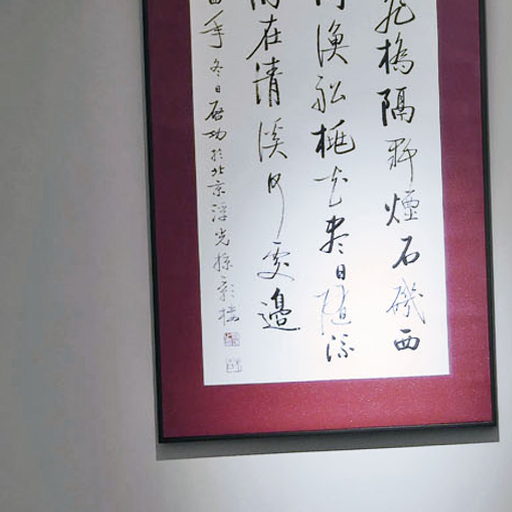 飛橋隔野煙石磯西
漁船桃花盡日隨流
在清溪何處邊
年冬日啟功於北京浮光掠影樓